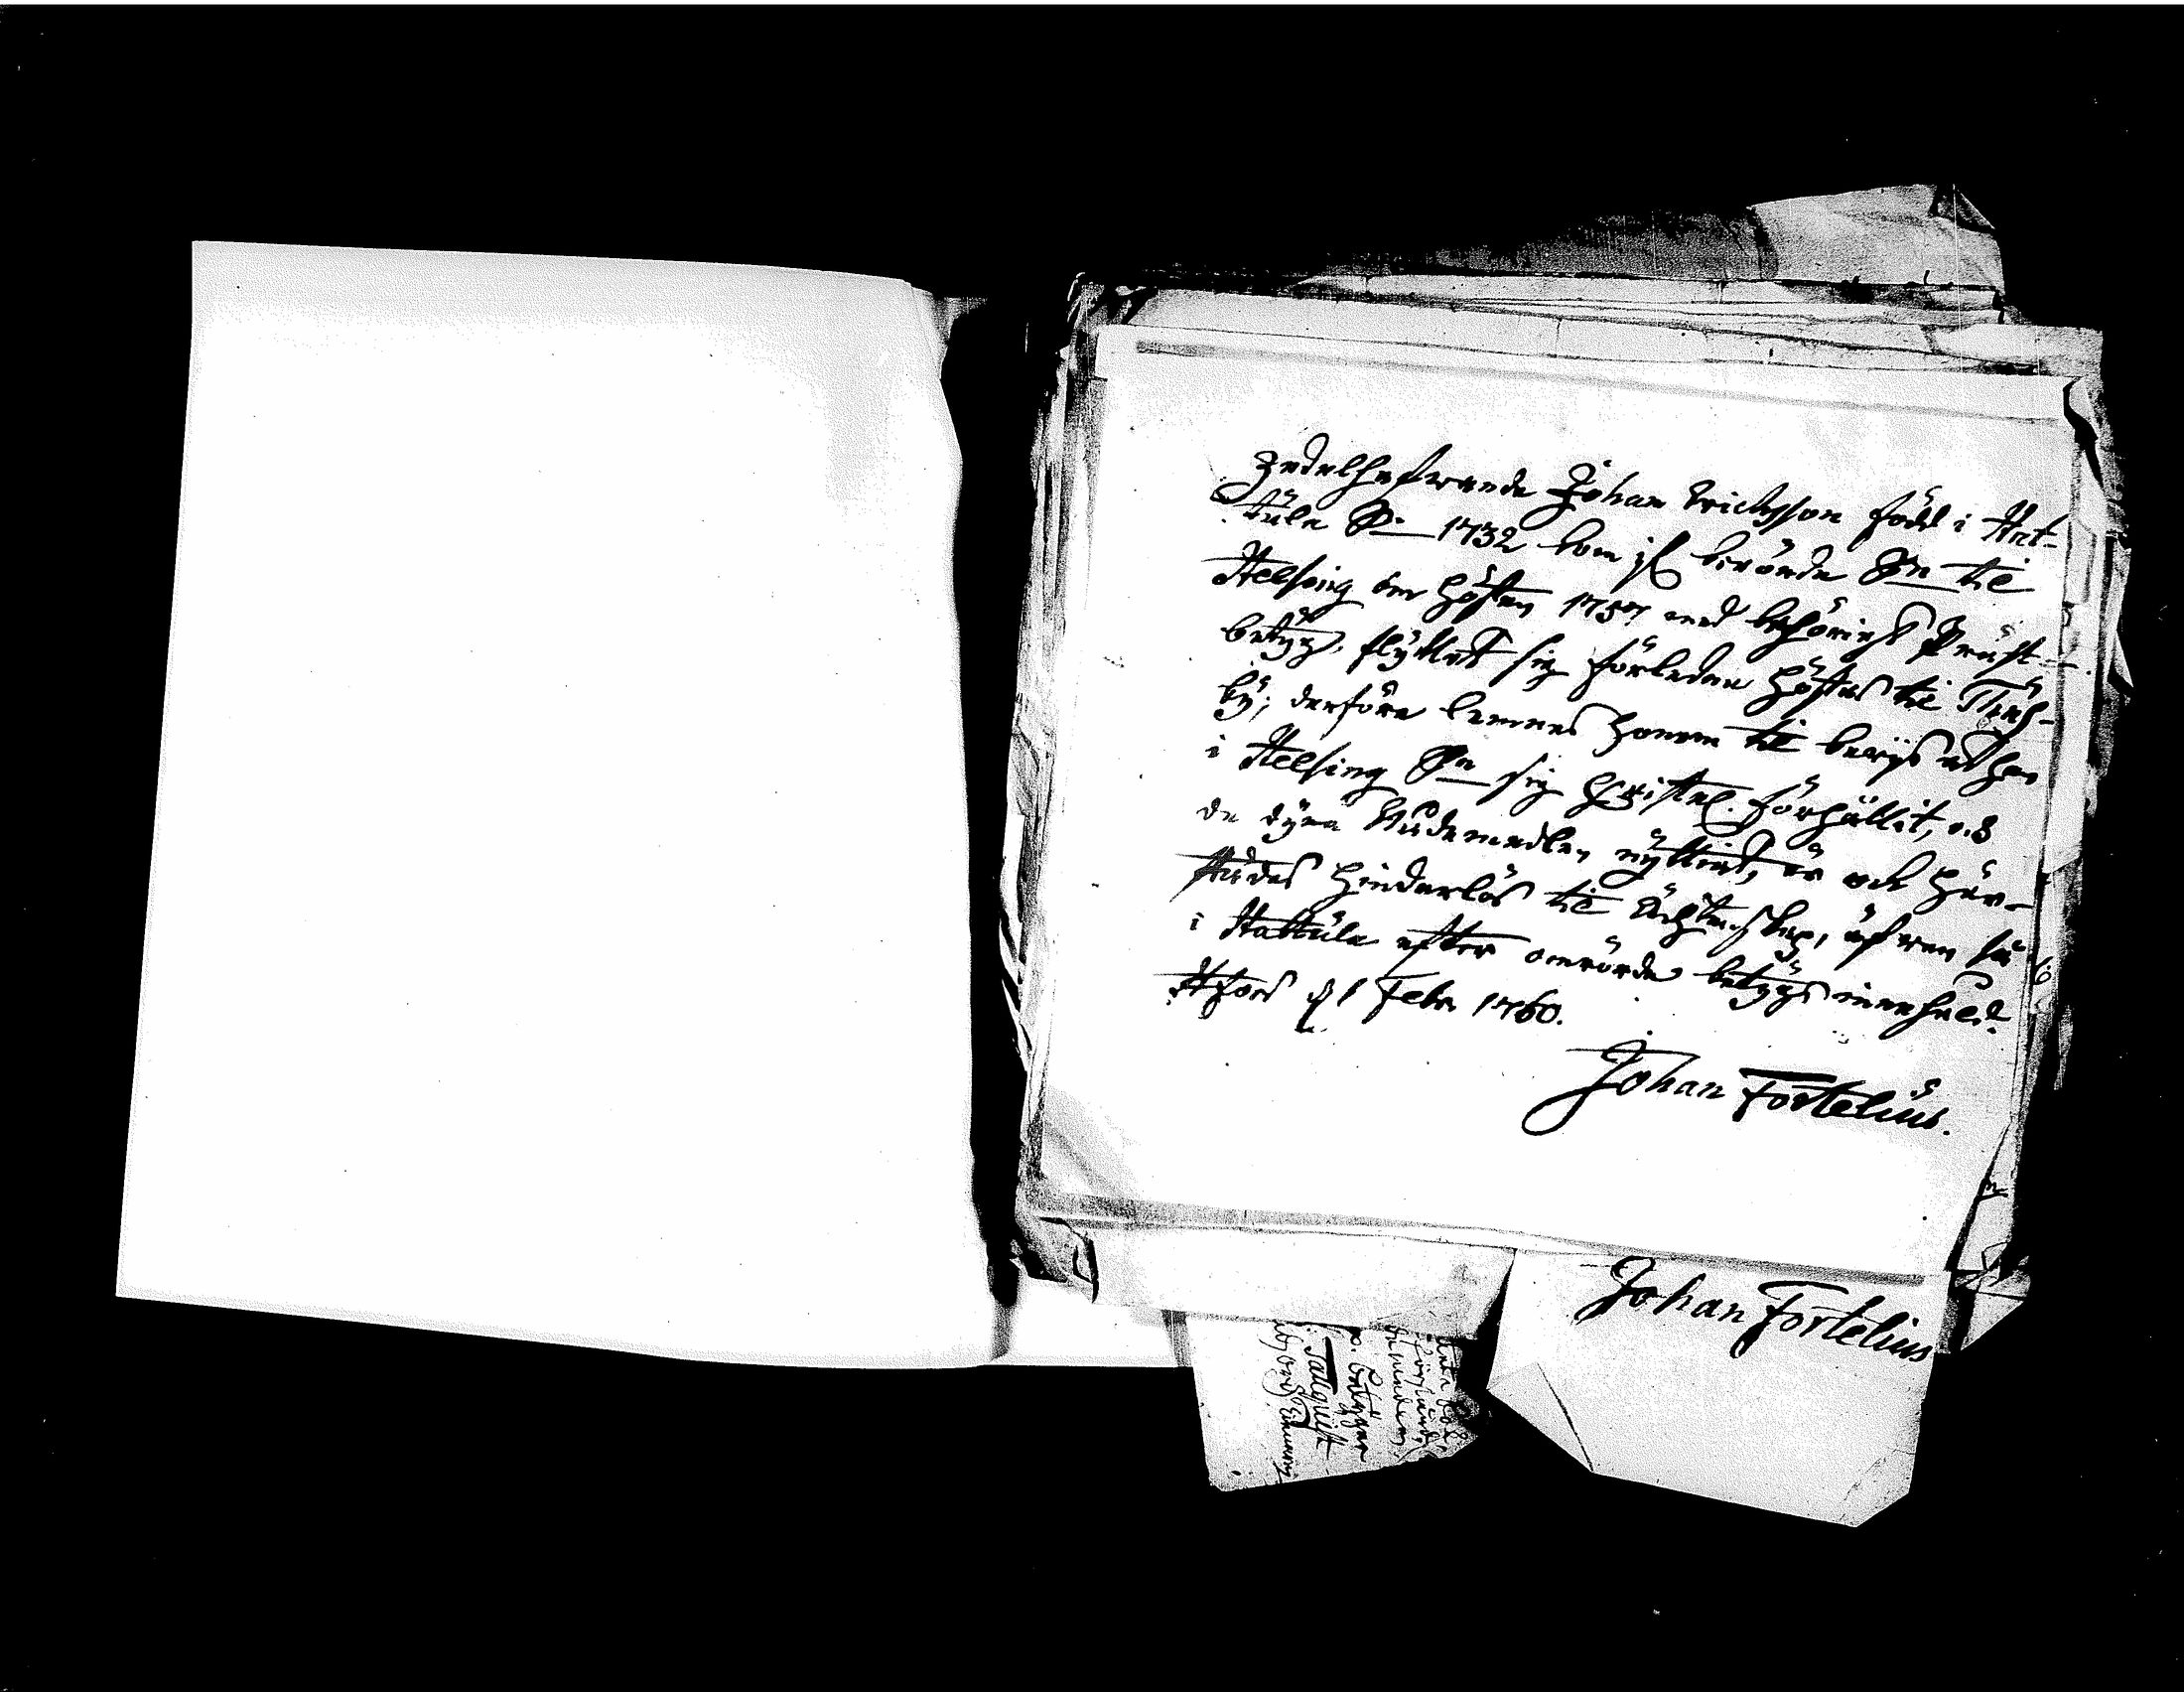 Zedelhafwande Johan Erichsson född i Hat-
tula Sn 1732 kom ifr berörde Sn til
Helsing om hösten 1757 med behörigt Präst-
betyg, flyttat sig förleden höstas til Träsk-
by; derföre lemnas honom til bewijs at han
i Helsing Sn sig Christel. förhållit, och
de dyra Nådemedlen nyttiat, är ock här-
städes hinderlös til Ächtenskap, äfwen så
i Hattula efter omrörde betygs innehåld.
Hfors d 1 Febr. 1760.
Johan Fortelius.
Johan Fortelius